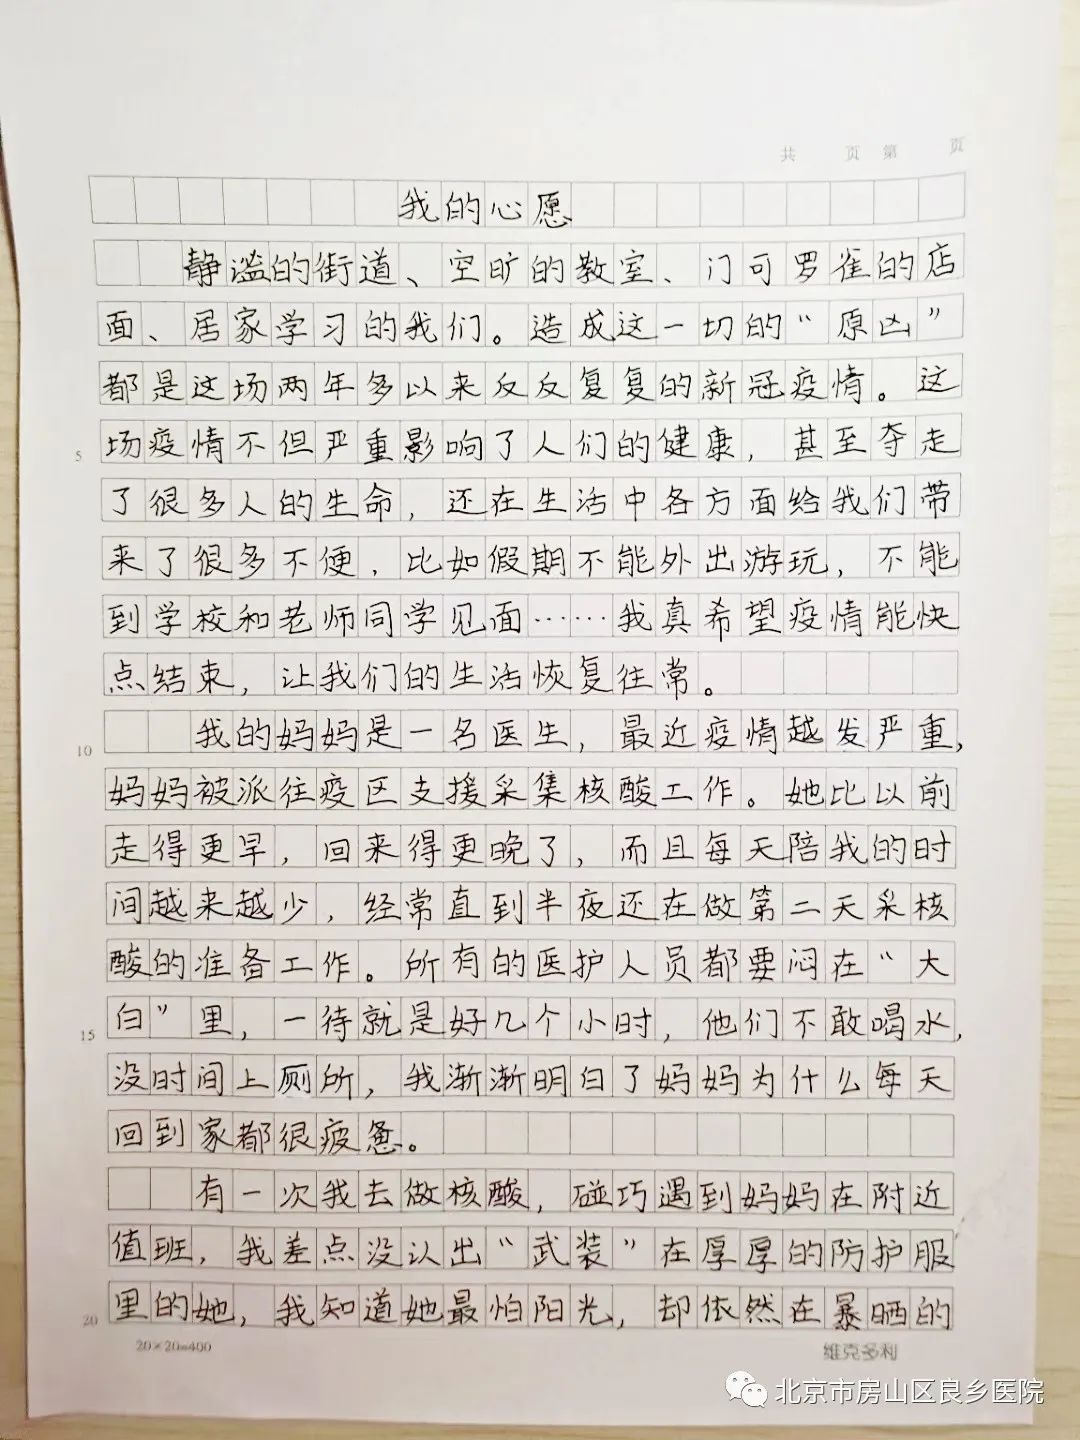 共 页 第 页
我的心愿
静谧的街道、空旷的教室、门可罗雀的店
面、居家学习的我们。造成这一切的“原凶”
都是这场两年多以来反反复复的新冠疫情。这
5 场疫情不但严重影响了人们的健康，甚至夺走
了很多人的生命，还在生活中各方面给我们带
来了很多不便，比如假期不能外出游玩，不能
到学校和老师同学见面……我真希望疫情能快
点结束，让我们的生活恢复往常。
10 我的妈妈是一名医生，最近疫情越发严重，
妈妈被派往疫区支援采集核酸工作。她比以前
走得更早，回来得更晚了，而且每天陪我的时
间越来越少，经常直到半夜还在做第二天采核
酸的准备工作。所有的医护人员都要闷在“大
15 白”里，一待就是好几个小时，他们不敢喝水，
没时间上厕所，我渐渐明白了妈妈为什么每天
回到家都很疲惫。
有一次我去做核酸，碰巧遇到妈妈在附近
值班，我差点没认出“武装”在厚厚的防护服
20 里的她，我知道她最怕阳光，却依然在暴晒的
20×20=400 维克多利
北京市房山区良乡医院